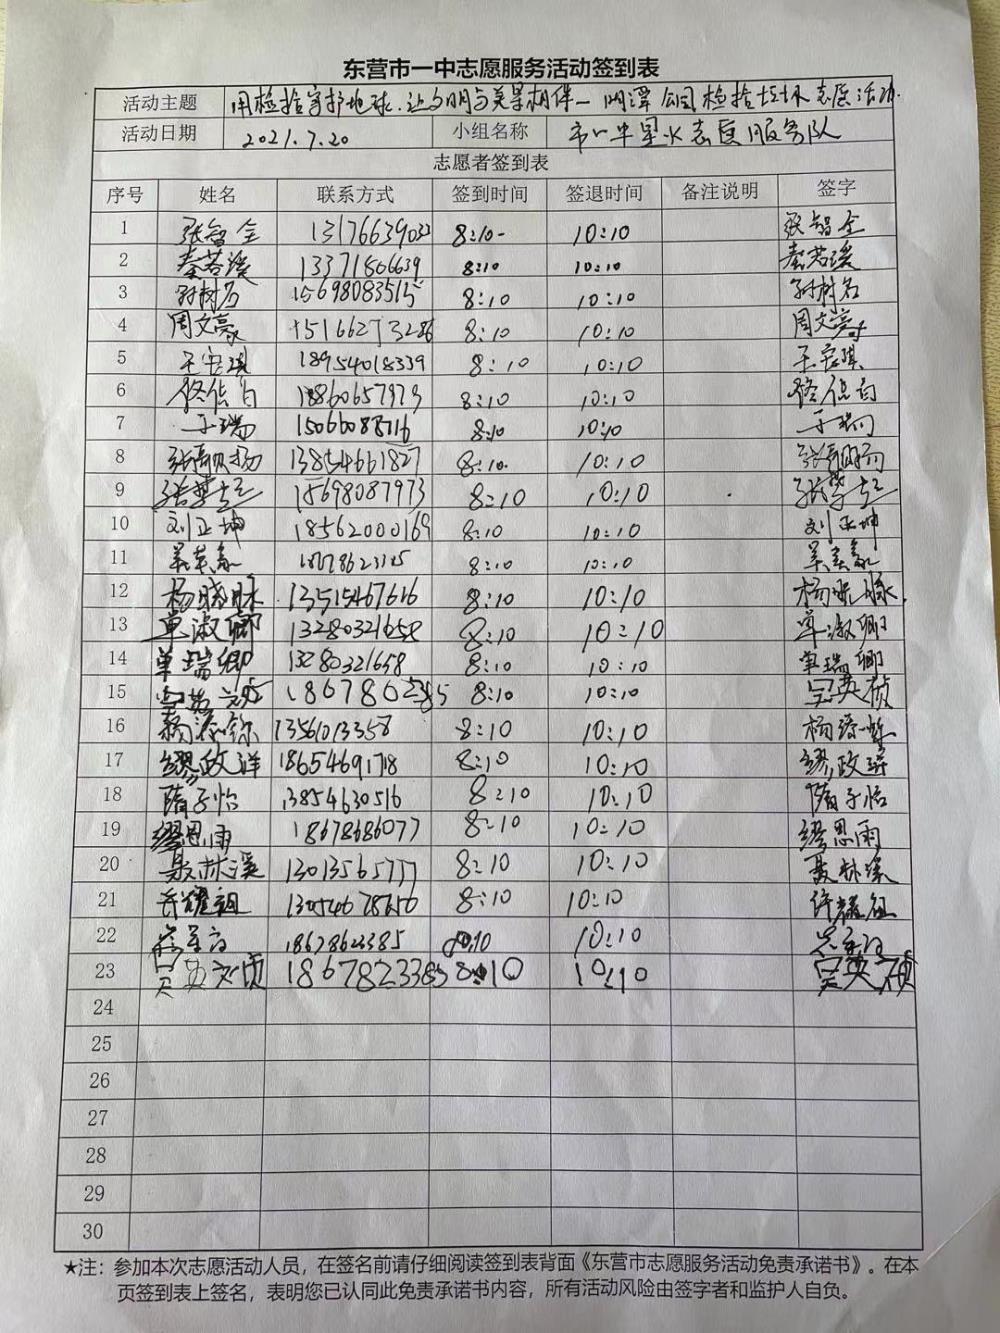 东营市一中志愿服务活动签到表
活动主题 用检拾守护地球.让文明与美景相伴一明潭公园检拾垃圾志愿活动.
活动日期 2021.7.20 小组名称 市一中星火志愿服务队
志愿者签到表
序号 姓名 联系方式 签到时间 签退时间 备注说明 签字
1 张智全 8:10- 10:10 张智全
2 秦若溪 13371806639 8:10 10:10 秦若溪
3 孙树名 15698083515 8:10 10:10 孙树名
4 周文豪 15166273286 8:10 10:10 周文豪
5 王安琪 18954018339 8:10 10:10 王安琪
6 8:10 10:10
7 于瑞 15066088716 8:10 10:10 于瑞
8 13854661827 8:10. 10:10
9 15698087973 8:10 10:10
10 刘正坤 18562000169 8:10 10:10 刘正坤
11 8:10 10:10
12 杨晓脉 13515467616 8:10 10:10 杨晓脉.
13 单淑卿 13280321658 8:10 10:10 单淑卿
14 单瑞卿 13280321658 8:10 10:10 单瑞卿
15 8:10 10:10
16 13561013358 8:10 10:10
17 缪政洋 18654691718 8:10 10:10 缪政洋
18 隋子怡 13854630516 8:10 10:10 隋子怡
19 缪思雨 18678686077 8:10 10:10 缪思雨
20 聂林溪 13013565777 8:10 10:10 聂林溪
21 8:10 10:10
22 18678623385 8:10 10:10
23 8:10 10:10
24
25
26
27
28
29
30
★注：参加本次志愿活动人员，在签名前请仔细阅读签到表背面《东营市志愿服务活动免责承诺书》。在本
页签到表上签名，表明您已认同此免责承诺书内容，所有活动风险由签字者和监护人自负。